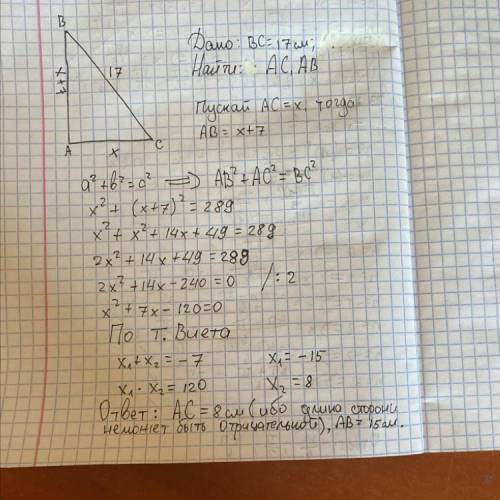 B
Дано: BC = 17 см;
Найти: AC, AB
x+7
17
Пускай AC = x, тогда
AB = x+7
A
x
C
a² + b² = c² ⟹ AB² + AC² = BC²
x² + (x+7)² = 289
x² + x² + 14x + 49 = 289
2x² + 14x + 49 = 289
2x² + 14x - 240 = 0 /: 2
x² + 7x - 120 = 0
По т. Виета
x₁ + x₂ = -7 x₁ = -15
x₁ · x₂ = 120 x₂ = 8
Ответ: AC = 8 см (ибо длина стороны
неможет быть отрицательной), AB = 15 см.